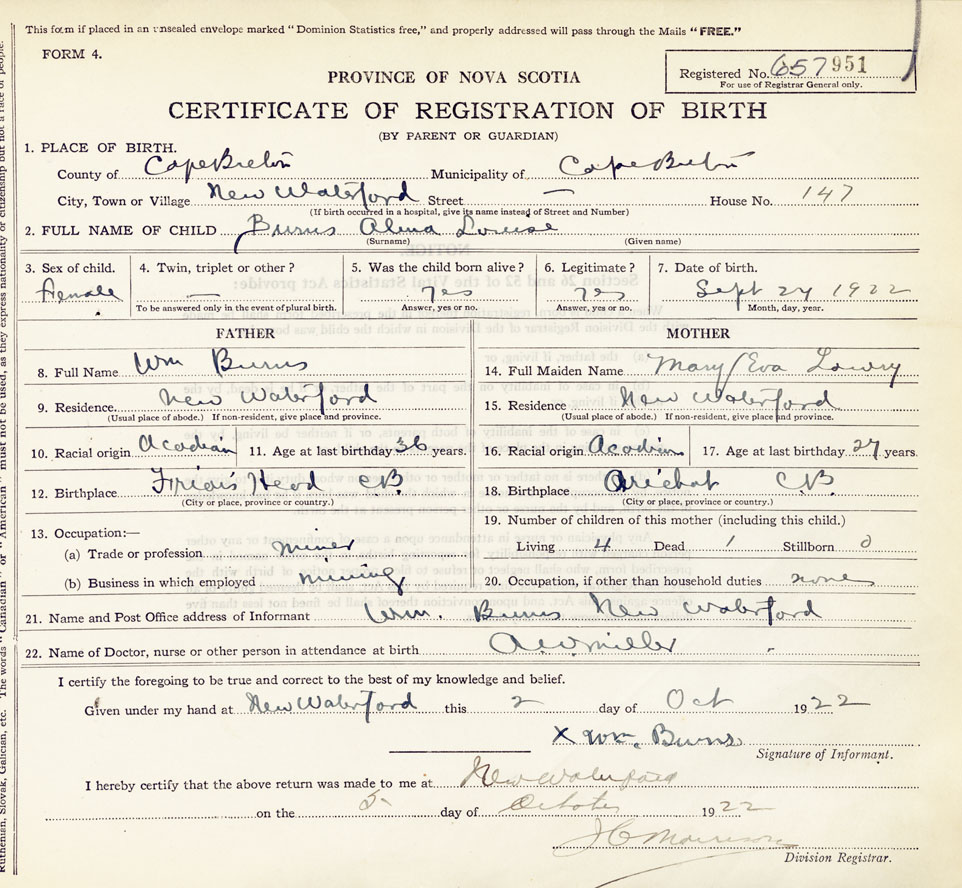 This form if placed in an unsealed envelope marked "Dominion Statistics free," and properly addressed will pass through the Mails "FREE."
FORM 4.
Registered No. 657951
For use of Registrar General only.
PROVINCE OF NOVA SCOTIA
CERTIFICATE OF REGISTRATION OF BIRTH
(BY PARENT OR GUARDIAN)
1. PLACE OF BIRTH.
County of Cape Breton Municipality of Cape Breton
City, Town or Village New Waterford Street — House No. 147
(If birth occurred in a hospital, give its name instead of Street and Number)
2. FULL NAME OF CHILD Burns Alma Louise
(Surname) (Given name)
3. Sex of child. 4. Twin, triplet or other? 5. Was the child born alive? 6. Legitimate? 7. Date of birth.
female — yes yes Sept 27 1922
To be answered only in the event of plural birth. Answer, yes or no. Answer, yes or no. Month, day, year.
FATHER MOTHER
8. Full Name Wm Burns 14. Full Maiden Name Mary Eva Lowry
9. Residence New Waterford 15. Residence New Waterford
(Usual place of abode.) If non-resident, give place and province. (Usual place of abode.) If non-resident, give place and province.
10. Racial origin Acadian 11. Age at last birthday 36 years. 16. Racial origin Acadian 17. Age at last birthday 27 years.
12. Birthplace Friars Head CB 18. Birthplace Arichat C.B.
(City or place, province or country.) (City or place, province or country.)
13. Occupation:— 19. Number of children of this mother (including this child.)
(a) Trade or profession miner Living 4 Dead 1 Stillborn 0
(b) Business in which employed mining 20. Occupation, if other than household duties none
21. Name and Post Office address of Informant Wm. Burns New Waterford
22. Name of Doctor, nurse or other person in attendance at birth A.W. Miller
I certify the foregoing to be true and correct to the best of my knowledge and belief.
Given under my hand at New Waterford this 2 day of Oct 1922
X Wm. Burns
Signature of Informant.
I hereby certify that the above return was made to me at New Waterford
on the 5 day of October 1922
J C Morrison
Division Registrar.
Ruthenian, Slovak, Galician, etc. The words "Canadian" or "American" must not be used, as they express nationality or citizenship but not a race of people.